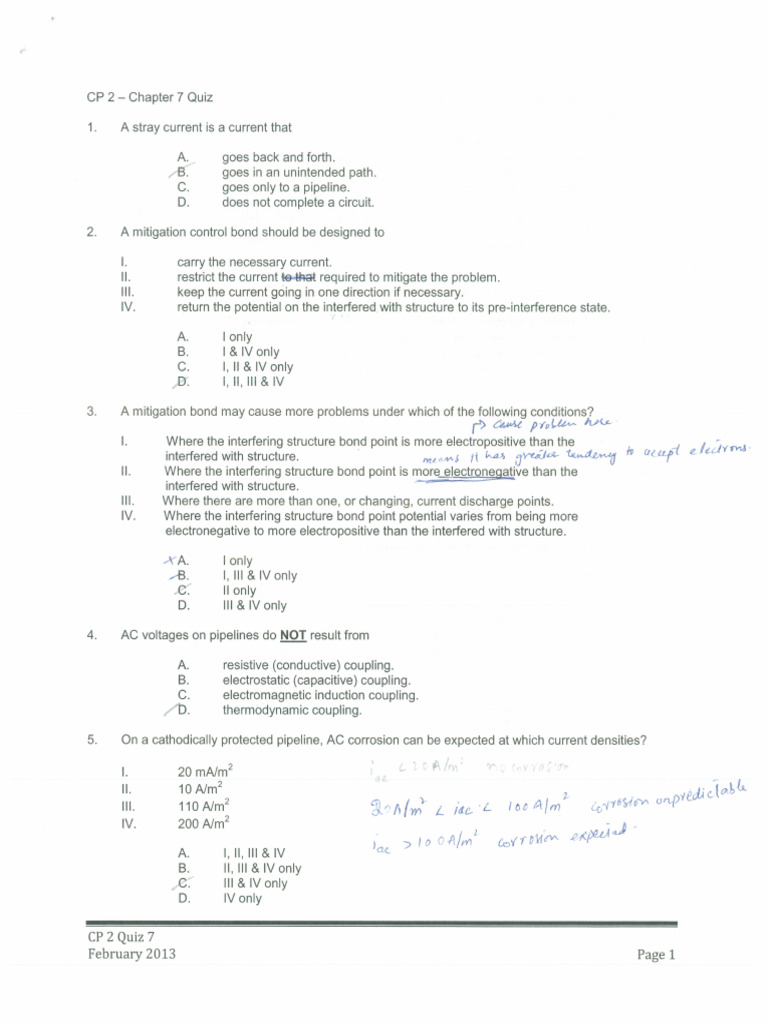 CP 2 – Chapter 7 Quiz
1. A stray current is a current that
A. goes back and forth.
B. goes in an unintended path.
C. goes only to a pipeline.
D. does not complete a circuit.
2. A mitigation control bond should be designed to
I. carry the necessary current.
II. restrict the current to that required to mitigate the problem.
III. keep the current going in one direction if necessary.
IV. return the potential on the interfered with structure to its pre-interference state.
A. I only
B. I & IV only
C. I, II & IV only
D. I, II, III & IV
3. A mitigation bond may cause more problems under which of the following conditions?
→ cause problem here.
I. Where the interfering structure bond point is more electropositive than the
interfered with structure.
means it has greater tendency to accept electrons.
II. Where the interfering structure bond point is more electronegative than the
interfered with structure.
III. Where there are more than one, or changing, current discharge points.
IV. Where the interfering structure bond point potential varies from being more
electronegative to more electropositive than the interfered with structure.
x A. I only
B. I, III & IV only
C. II only
D. III & IV only
4. AC voltages on pipelines do NOT result from
A. resistive (conductive) coupling.
B. electrostatic (capacitive) coupling.
C. electromagnetic induction coupling.
D. thermodynamic coupling.
5. On a cathodically protected pipeline, AC corrosion can be expected at which current densities?
I. 20 mA/m² iac <20A/m² no corrosion
II. 10 A/m²
III. 110 A/m² 20A/m² < iac < 100A/m² corrosion unpredictable
IV. 200 A/m² iac >100A/m² corrosion expected.
A. I, II, III & IV
B. II, III & IV only
C. III & IV only
D. IV only
CP 2 Quiz 7
February 2013 Page 1